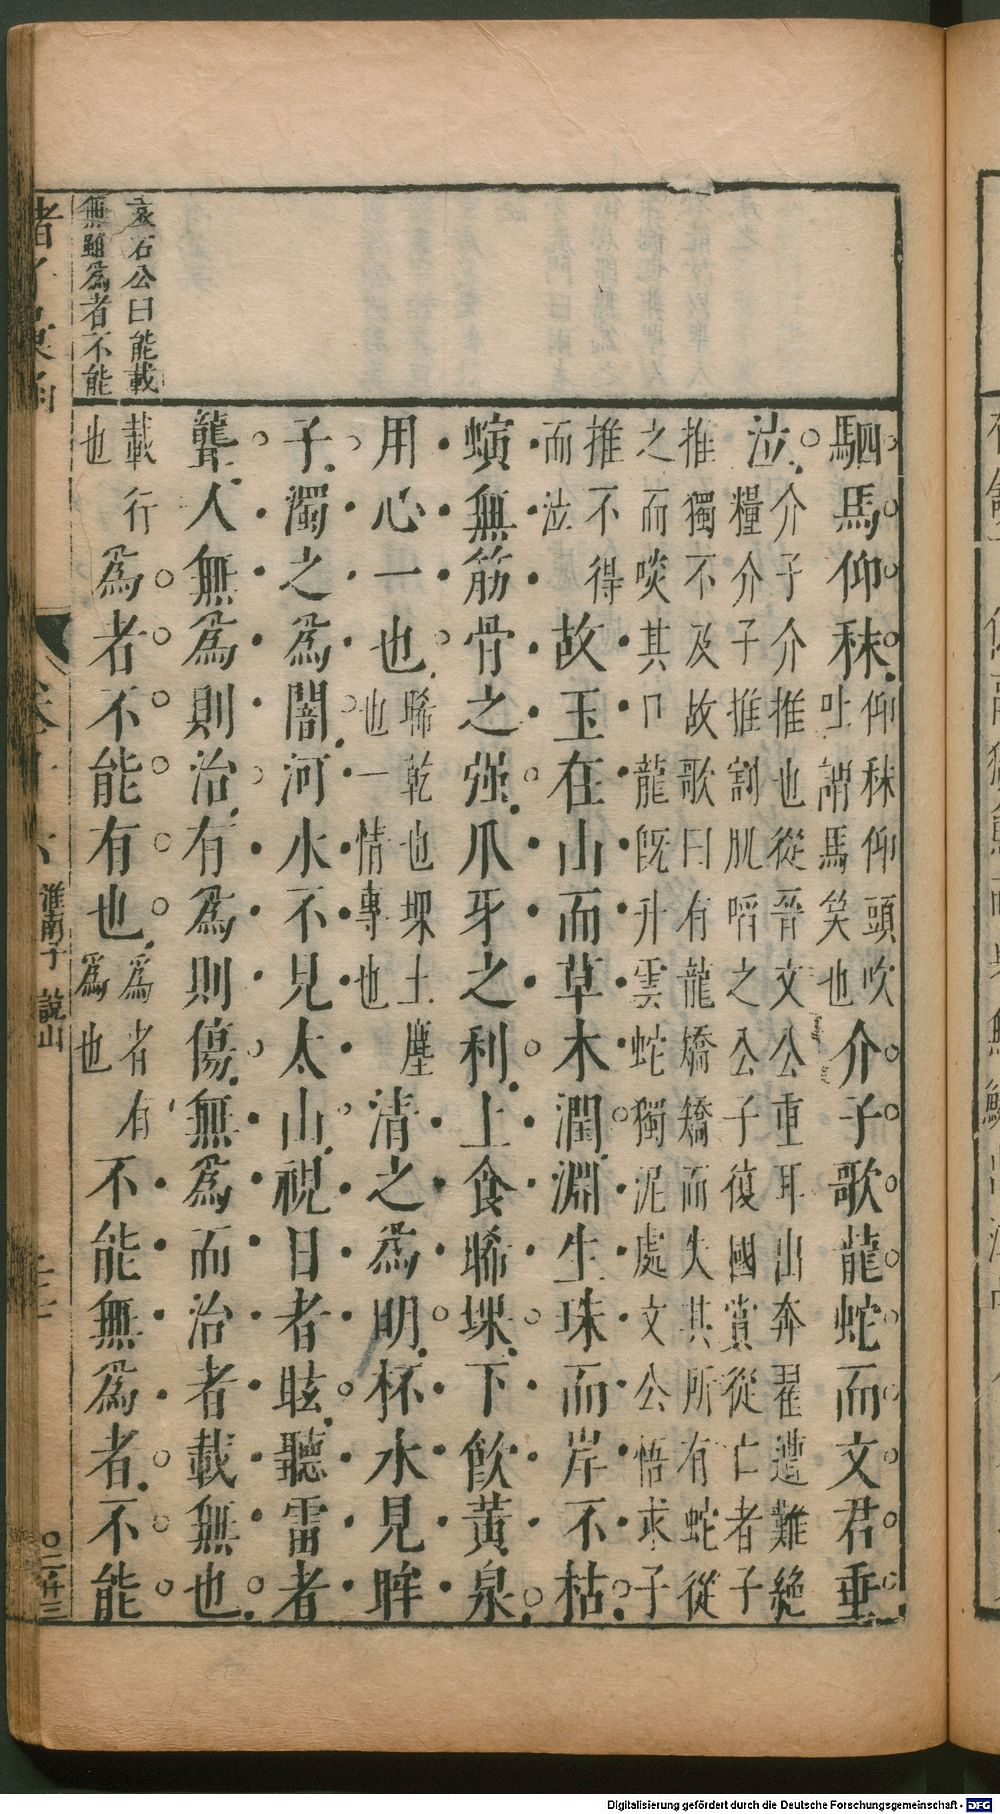 袁石公曰能載
無雖爲者不能
駟馬仰秣仰秣仰頭吹吐謂馬笑也介子歌龍蛇而文君垂
泣介子介推也從晉文公重耳出奔翟遭難絶糧介子推割肌啗之公子復國賞從亡者子
推獨不及故歌曰有龍矯矯而失其所有蛇從之而啖其口龍旣升雲蛇獨泥處文公悟求子
推不得而泣故玉在山而草木潤淵生珠而岸不枯
螾無筋骨之强爪牙之利上食晞堁下飮黃泉
用心一也晞乾也堁土塵也一情專也清之爲明杯水見眸
子濁之爲闇河水不見太山視日者眩聽雷者
聾人無爲則治有爲則傷無爲而治者載無也
載行也爲者不能有也爲者有爲也不能無爲者不能
淮南子 說山
〇二卄三
Digitalisierung gefördert durch die Deutsche Forschungsgemeinschaft - DFG